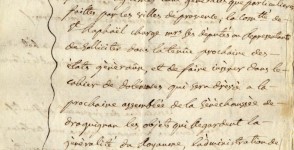 faittes par les villes de provence, la Comté de
St Raphaël charge ses députés et représentants
de solliciter dans la tenüe prochaine des
Etats généraux, et de faire insérer dans le
Cahier de doleances qui sera dressé a la
prochaine assemblée de la Sénéchaussée de
draguignan les objets qui regardent la
generalité du Royaume, l'administration de